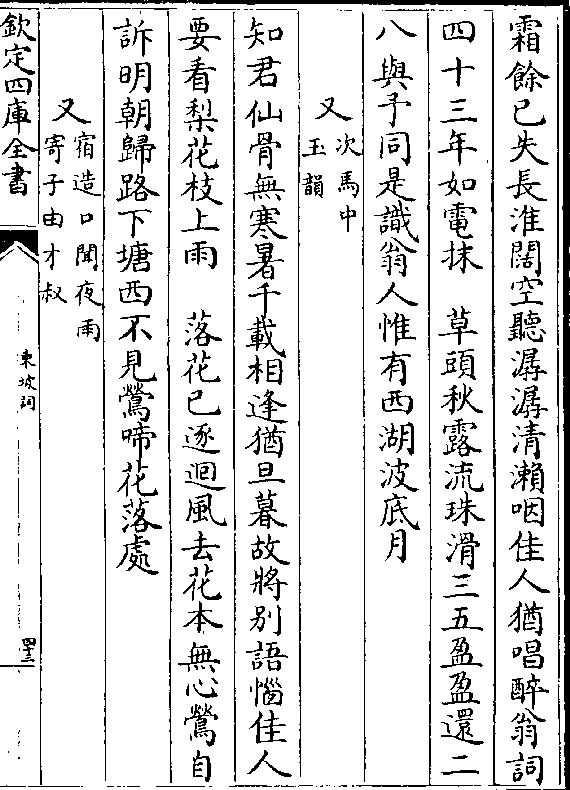 霜餘已失長淮闊空聽潺潺清瀨咽佳人猶唱醉翁詞
四十三年如電抹　草頭秋露流珠滑三五盈盈還二
八與予同是識翁人惟有西湖波底月
又次馬中
玉韻
知君仙骨無寒暑千載相逢猶旦暮故將别語惱佳人
要看梨花枝上雨　落花已逐迴風去花本無心鶯自
訴明朝歸路下塘西不見鶯啼花落處
又宿造口聞夜雨
寄子由才叔
欽定四庫全書
東坡詞
四十三